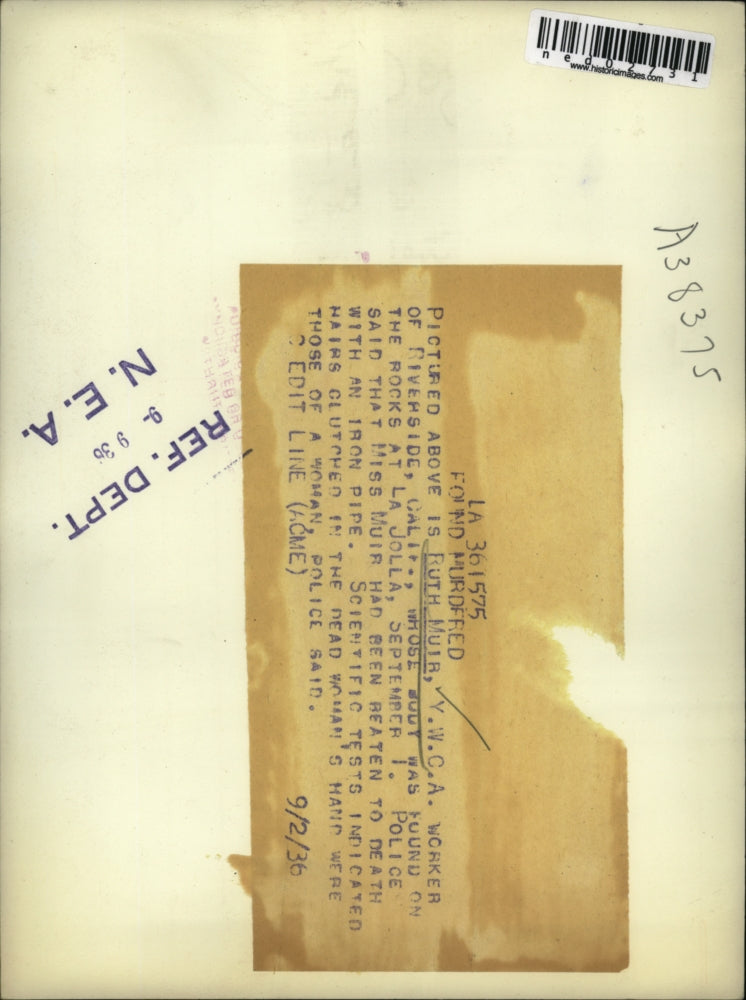 ned02731
www.historicimages.com
A38375
LA 361575
FOUND MURDERED
PICTURED ABOVE IS RUTH MUIR, Y.W.C.A. WORKER
OF RIVERSIDE, CALIF., WHOSE BODY WAS FOUND ON
THE ROCKS AT LA JOLLA, SEPTEMBER 1. POLICE
SAID THAT MISS MUIR HAD BEEN BEATEN TO DEATH
WITH AN IRON PIPE. SCIENTIFIC TESTS INDICATED
HAIRS CLUTCHED IN THE DEAD WOMAN'S HAND WERE
THOSE OF A WOMAN, POLICE SAID.
EDIT LINE (ACME) 9/2/36
REF. DEPT.
9- 9 36
N. E. A.